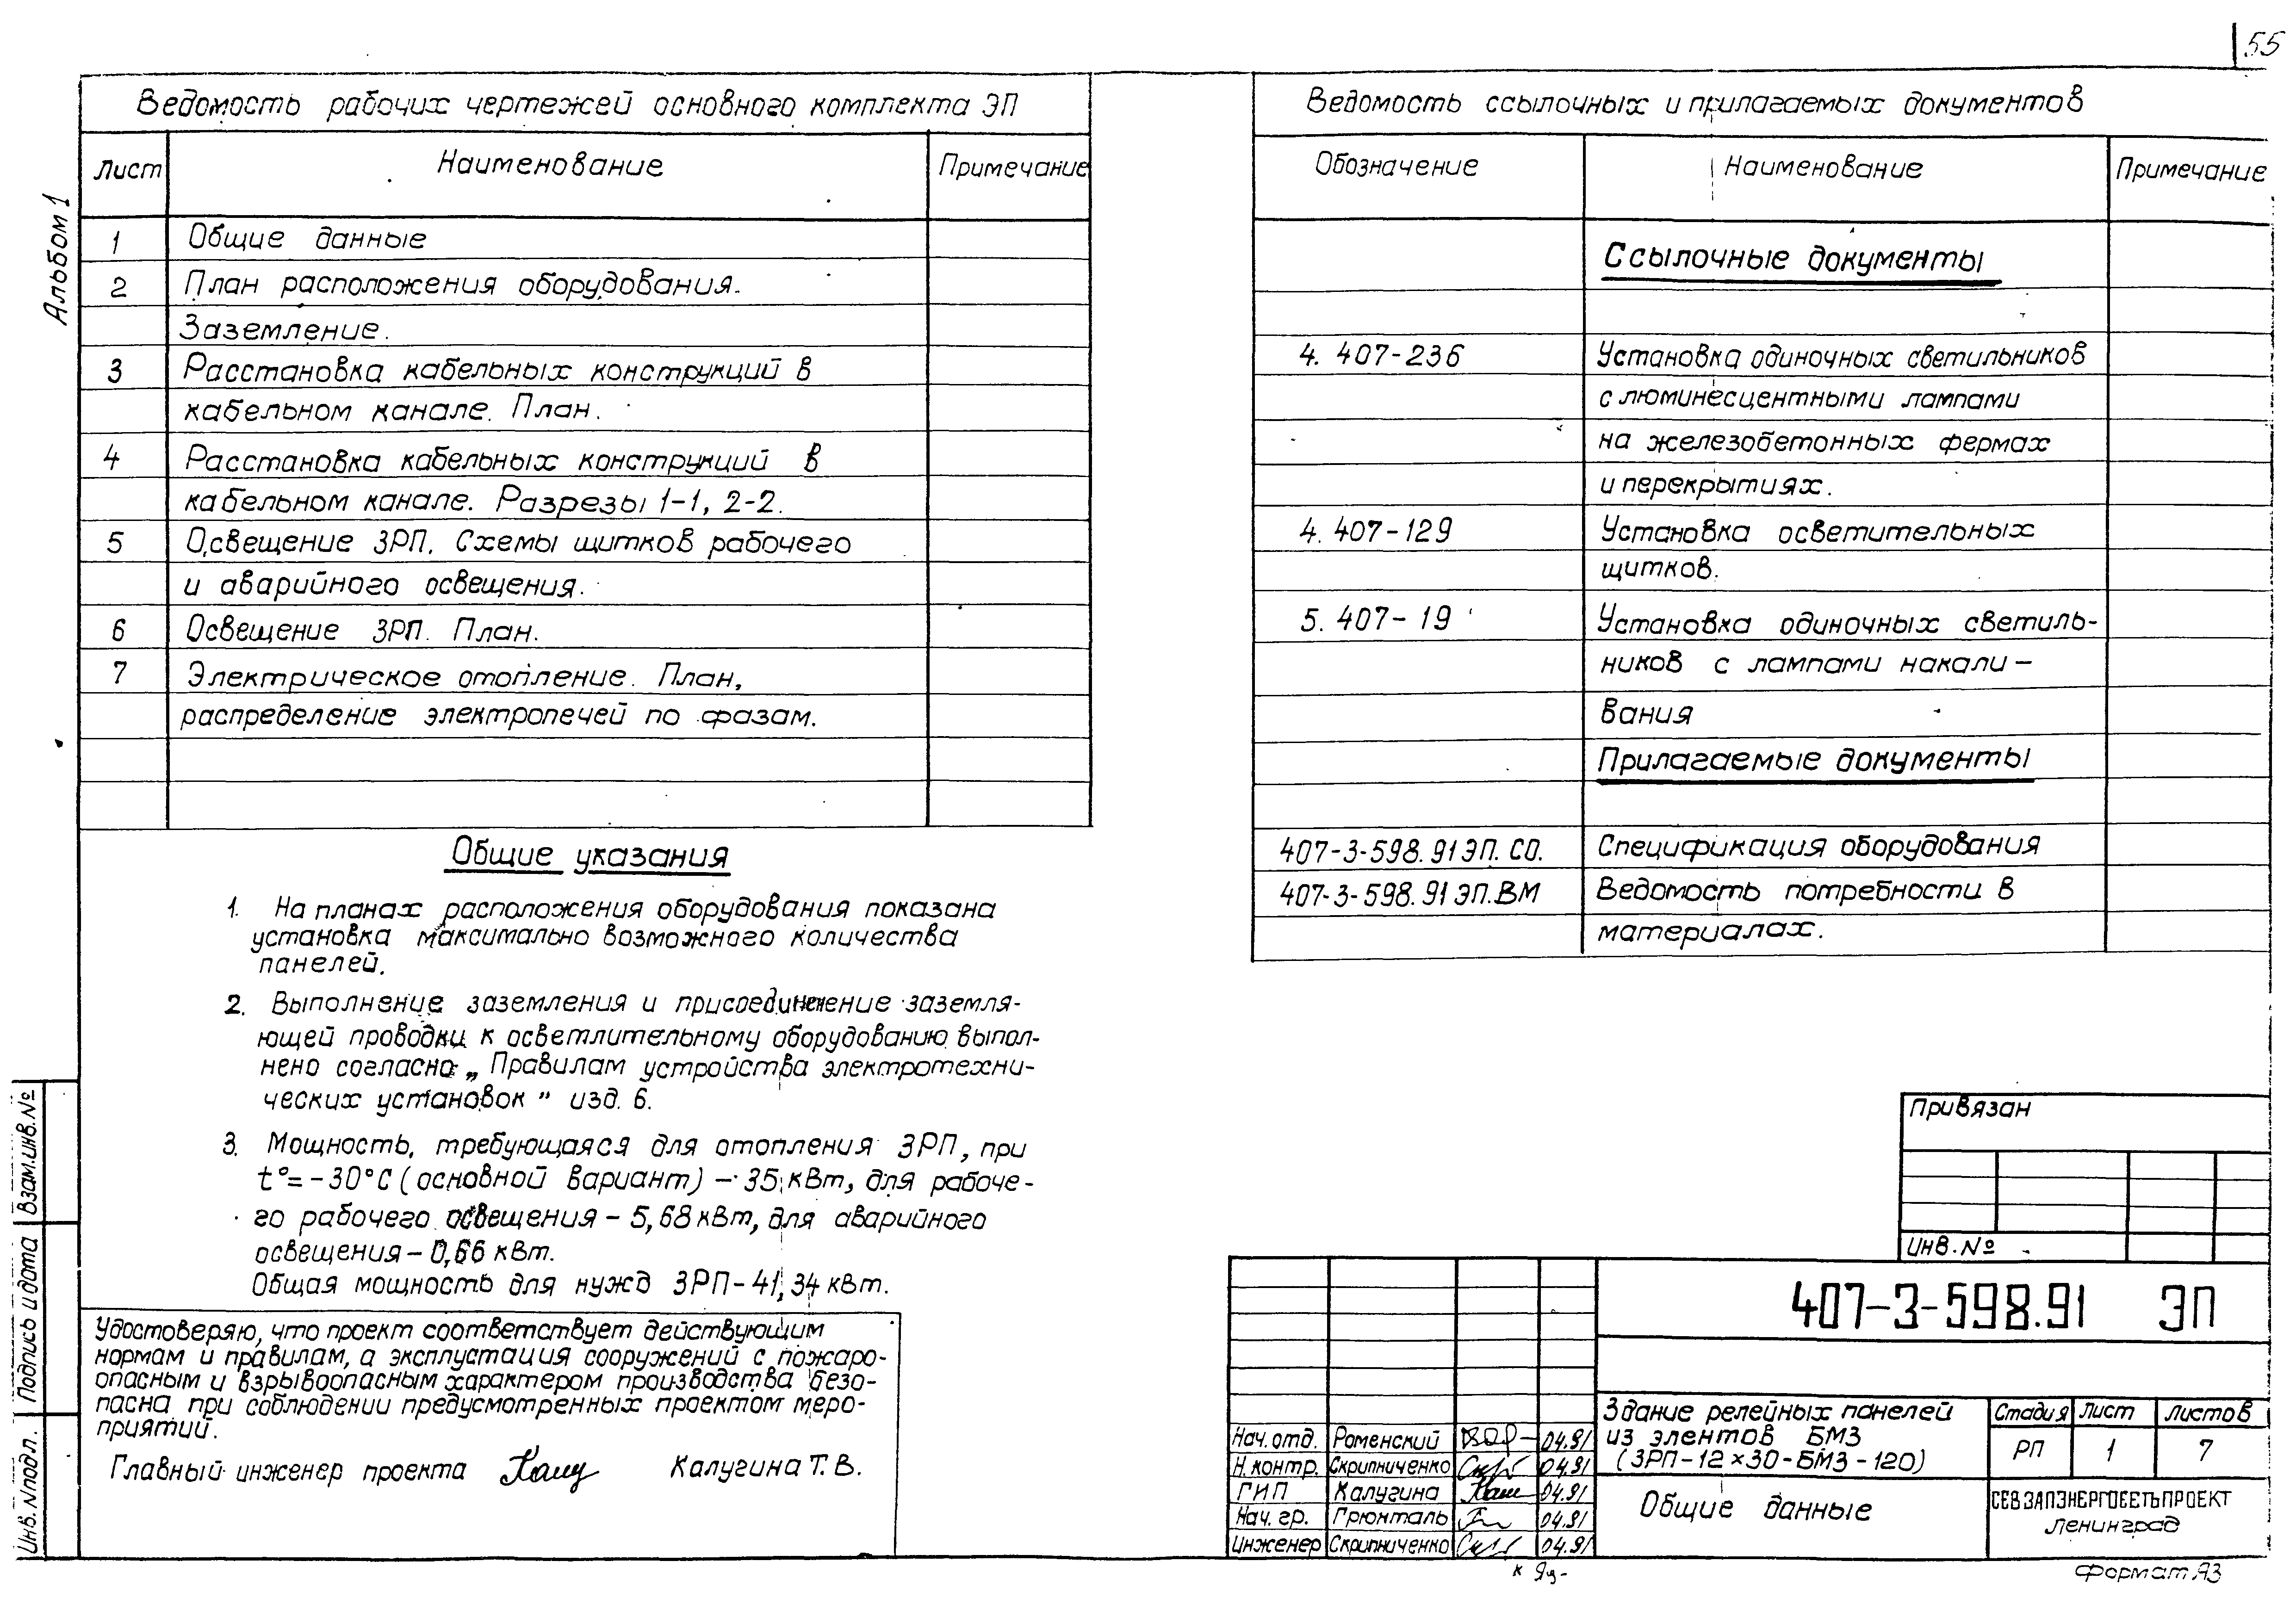 55
Альбом 1
Ведомость рабочих чертежей основного комплекта ЭП
Лист Наименование Примечание
1 Общие данные
2 План расположения оборудования.
Заземление.
3 Расстановка кабельных конструкций в
кабельном канале. План.
4 Расстановка кабельных конструкций в
кабельном канале. Разрезы 1-1, 2-2.
5 Освещение ЗРП. Схемы щитков рабочего
и аварийного освещения.
6 Освещение ЗРП. План.
7 Электрическое отопление. План,
распределение электропечей по фазам.
Общие указания
1. На планах расположения оборудования показана
установка максимально возможного количества
панелей.
2. Выполнение заземления и присоединение заземля-
ющей проводки к осветлительному оборудованию выпол-
нено согласно „Правилам устройства электротехни-
ческих установок" изд. 6.
3. Мощность, требующаяся для отопления ЗРП, при
t°=-30°С (основной вариант) - 35 кВт, для рабоче-
го рабочего освещения - 5,68 кВт, для аварийного
освещения - 0,66 кВт.
Общая мощность для нужд ЗРП - 41,34 кВт.
Удостоверяю, что проект соответствует действующим
нормам и правилам, а эксплустация сооружений с пожаро-
опасным и взрывоопасным характером производства безо-
пасна при соблюдении предусмотренных проектом меро-
приятий.
Главный инженер проекта Калугина Т.В.
Ведомость ссылочных и прилагаемых документов
Обозначение Наименование Примечание
Ссылочные документы
4.407-236 Установка одиночных светильников
с люминесцентными лампами
на железобетонных фермах
и перекрытиях.
4.407-129 Установка осветительных
щитков.
5.407-19 Установка одиночных светиль-
ников с лампами накали-
вания
Прилагаемые документы
407-3-598.91 ЭП.СО. Спецификация оборудования
407-3-598.91 ЭП.ВМ Ведомость потребности в
материалах.
Привязан
Инв.№
407-3-598.91 ЭП
Здание релейных панелей
из элентов БМЗ
(ЗРП-12×30-БМЗ-120)
Стадия Лист Листов
РП 1 7
Общие данные
СЕВЗАПЭНЕРГОСЕТЬПРОЕКТ
Ленинград
Нач.отд. Роменский 04.91
Н.контр. Скрипниченко 04.91
ГИП Калугина 04.91
Нач.гр. Грюнталь 04.91
Инженер Скрипниченко 04.91
Формат А3
Инв.№подл. Подпись и дата Взам.инв.№